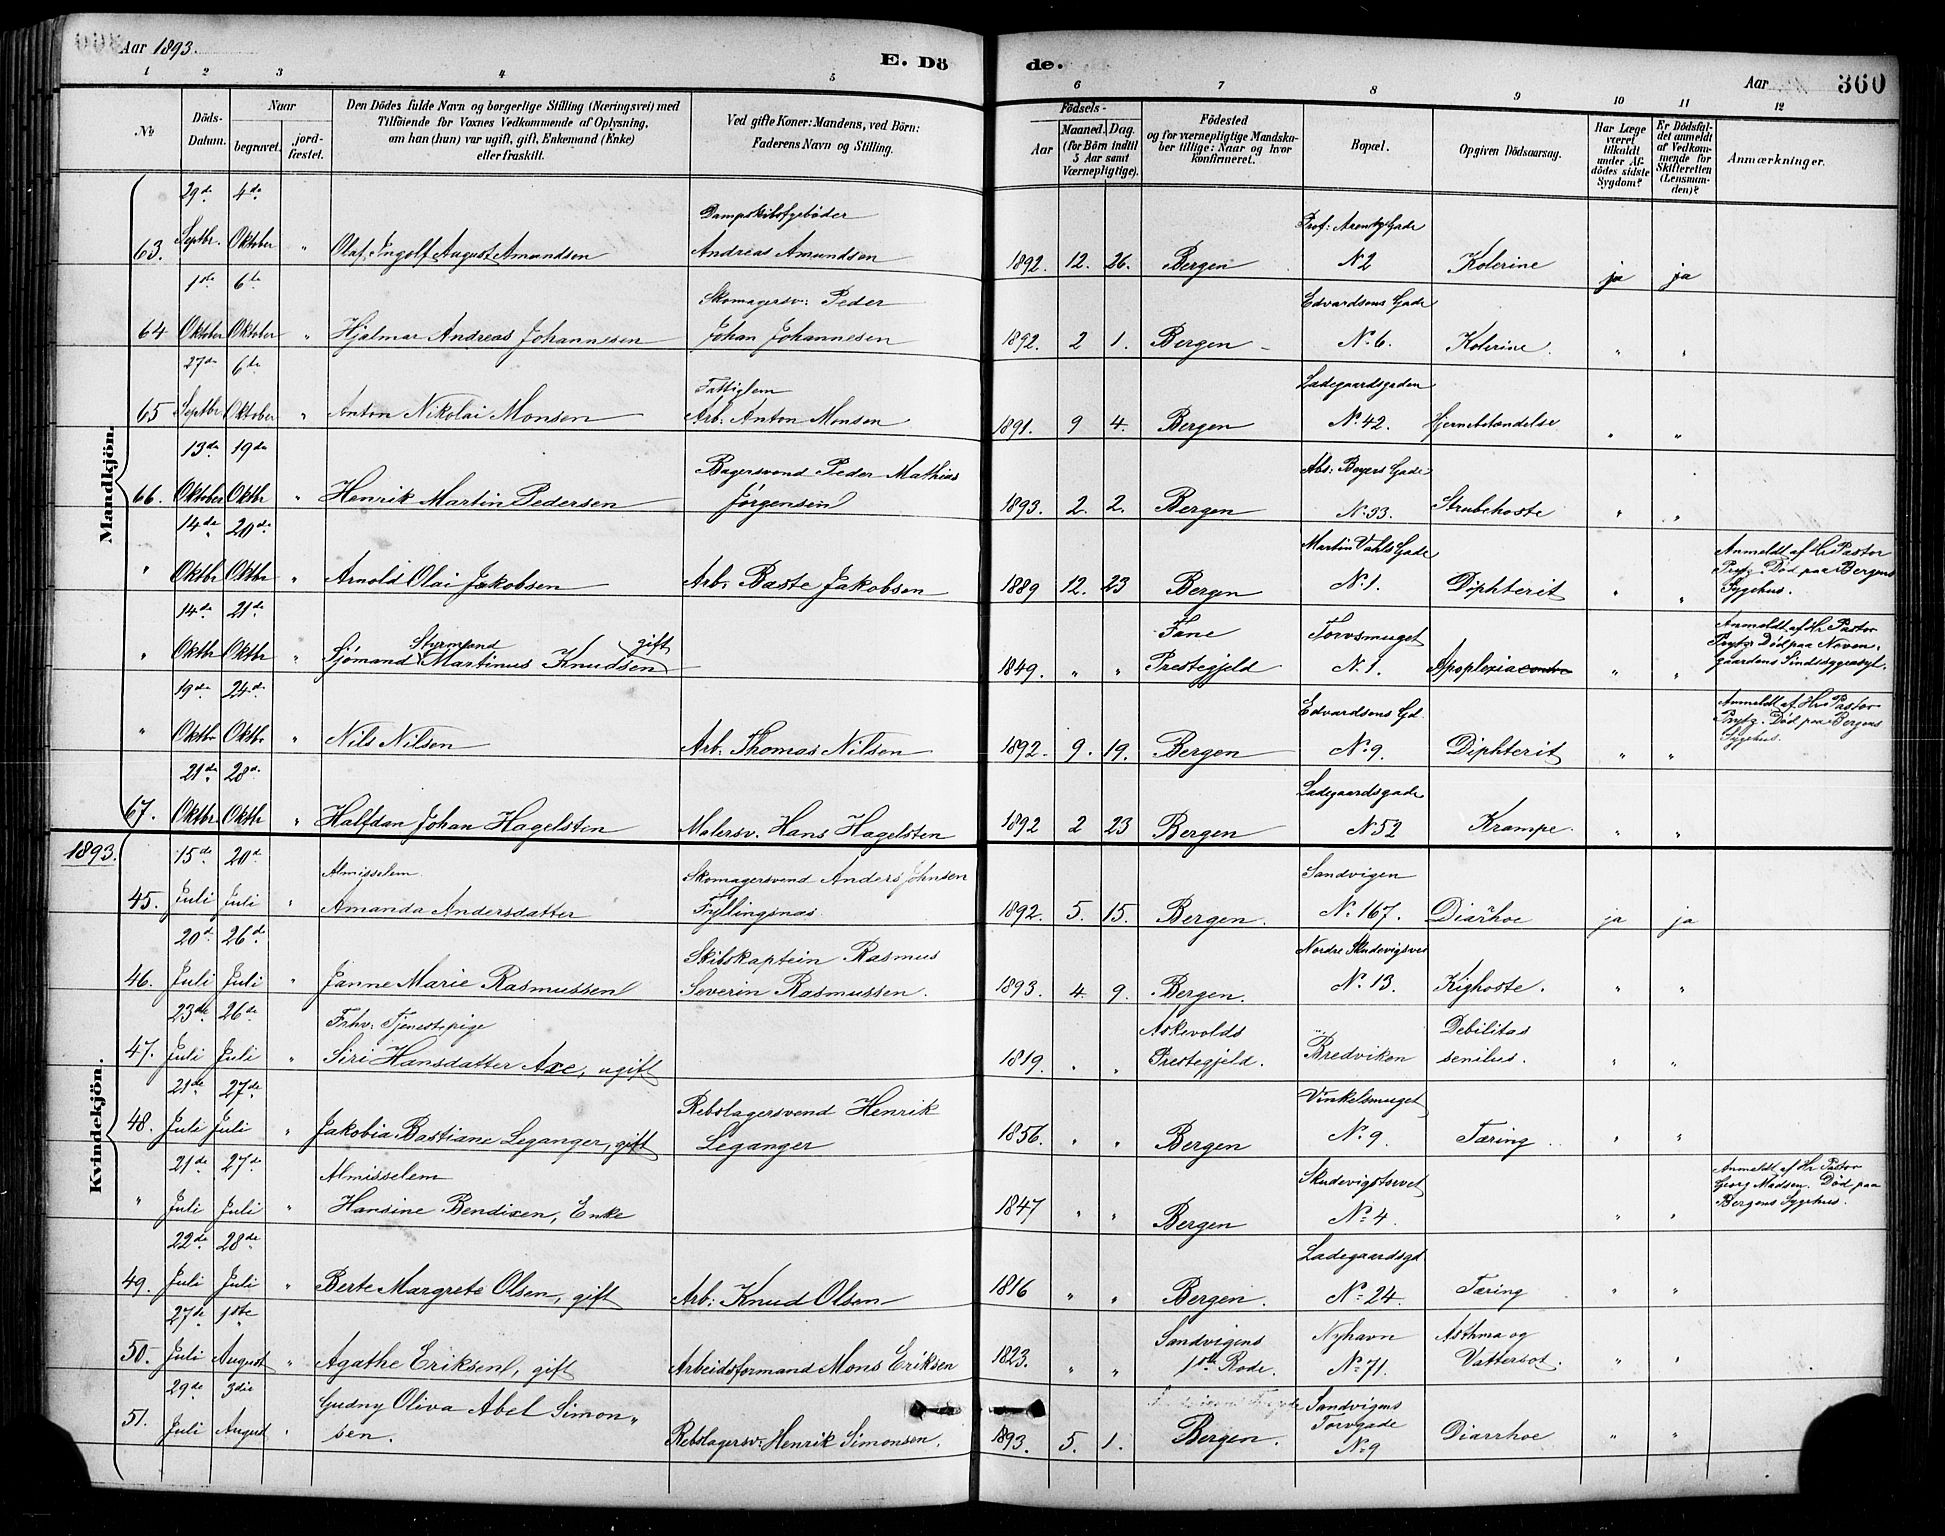 Aar 1893.
E. Dö de.
Aar 360
1 2 3 4 5 6 7 8 9 10 11 12
No
Döds-Datum.
Naar
begravet.
jord-fæstet.
Den Dödes fulde Navn og borgerlige Stilling (Næringsvei) med
Tilföiende for Voxnes Vedkommende af Oplysning,
om han (hun) var ugift, gift, Enkemand (Enke)
eller fraskilt.
Ved gifte Koner: Mandens, ved Börn:
Faderens Navn og Stilling.
Födsels-
Aar
Maaned. Dag.
(for Börn indtil
5 Aar samt
Værnepligtige).
Födested
og for værnepligtige Mandska-
ber tillige: Naar og hvor
konfirmeret.
Bopæl.
Opgiven Dödsaarsag.
Har Læge
været
tilkaldt
under Af-
dödes sidste
Sygdom?
Er Dödsfal-
det anmeldt
af Vedkom-
mende for
Skifteretten
(Lensman-
den)?
Anmærkninger.
Mandkjön.
29de 4de Dampskibsfyrbøder Prof: Arentz Gade
63. Septbr. Oktober " Olaf Ingolf August Amundsen Andreas Amundsen 1892. 12. 26. Bergen N 2 Kolerine ja ja
1ste 6te Skomagersv: Peder Edvardsens Gade
64 Oktober Oktober " Hjalmar Andreas Johannesen Johan Johannesen 1892. 2 1. Bergen - No 6. Kolerine. " "
27de 6te Fattiglem Ladegaardsgaden
65 Septbr Oktober " Anton Nikolai Monsen Arb. Anton Monsen 1891. 9 4. Bergen No 42. Hjernebetændelse " "
13de 19de Bagersvend Peder Mathias Abs: Beyers Gade
66. Oktober Oktbr " Henrik Martin Pedersen Jørgensen 1893. 2. 2. Bergen No 33. Strubehoste " "
14de 20de Martin Vahls Gade Anmeldt af Hr Pastor
" Oktbr Oktbr " Arnold Olai Jakobsen Arb. Baste Jakobsen 1889 12. 23 Bergen No 1. Diphterit " " Prytz. Død paa Bergens
Sygehus.
14de 21de Styrmand gift Fane Torvsmuget Anmeldt af Hr Pastor
" Oktbr Oktbr " Sjømand Martinus Knudsen 1849. " " Prestegjeld No 1. Apoplexia " " Prytz. Død paa Neven-
gaardens Sindssygeasyl.
19de 24de Edvardsens Gd. Anmeldt af Hr Pastor
" Oktbr Oktbr " Nils Nilsen Arb. Thomas Nilsen 1892. 9. 19. Bergen No 9. Diphterit " " Prytz. Død paa Bergens
Sygehus.
21de 28de Ladegaardsgade
67. Oktbr Oktbr " Halfdan Johan Hagelsten Malersv. Hans Hagelsten 1892 2 23 Bergen N 52 Krampe. " "
1893.
Kvindekjön.
15de 20de Almisselem. Skomagersvend Anders Johnsen Sandvigen
45. Juli Juli " Amanda Andersdatter Fyllingsnæs. 1892. 5. 15. Bergen. No 167. Diarrhoe ja ja
20de 26de Skibskaptein Rasmus Nordre Skudevigsvei
46. Juli Juli " Janne Marie Rasmussen Severin Rasmussen. 1893. 4 9. Bergen. No 13. Kighoste. " "
23de 26de Frhv: Tjenestepige Askevolds Debilitas
47. Juli Juli " Siri Hansdatter Axe, ugift 1819. " " Prestegjeld. Bredviken senilus. " "
21de 27de Rebslagersvend Henrik Vinkelsmuget
48. Juli Juli " Jakobia Bastiane Leganger, gift Leganger 1856. " " Bergen No 9. Tæring " "
21de 27de Almisselem Skudevigstorvet Anmeldt af Hr Pastor
" Juli Juli " Hansine Bendixen, Enke 1847 " " Bergen No 4. " " Georg Madsen. Død paa
Bergens Sygehus.
22de 28de Ladegaardsgd
49. Juli Juli " Berte Margrete Olsen, gift Arb: Knud Olsen 1816 " " Bergen. No 24. Tæring " "
27de 1ste Sandvigens Nyhavn Asthma og
50. Juli August " Agathe Eriksen, gift Arbeidsformand Mons Eriksen 1823. " " 1ste Rode. No 71. Vattersot. " "
29de 3die Gudny Oliva Abel Simon- Sandvigens
51. Juli August " sen. Rebslagersv. Henrik Simonsen. 1893. 5. 1. Bergen. Torvgade Diarrhoe " "
No 9